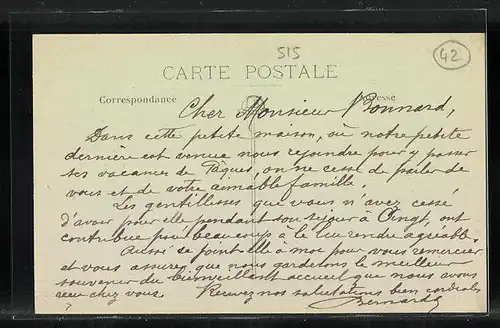 515
42
CARTE POSTALE
Correspondance
Adresse
Cher Monsieur Bonnard,
Dans cette petite maison, où notre petite
dernière est venue nous rejoindre pour y passer
ses vacances de Pâques, on ne cesse de parler de
vous et de votre aimable famille.
Les gentillesses que vous n'avez cessé
d'avoir pour elle pendant son séjour à Oingt, ont
contribué pour beaucoup à le lui rendre agréable.
Aussi se joint-elle à moi pour vous remercier
et vous assurer que nous garderons le meilleur
souvenir du bienveillant accueil que nous avons
reçu chez vous. Recevez nos salutations bien cordiales
Bernard